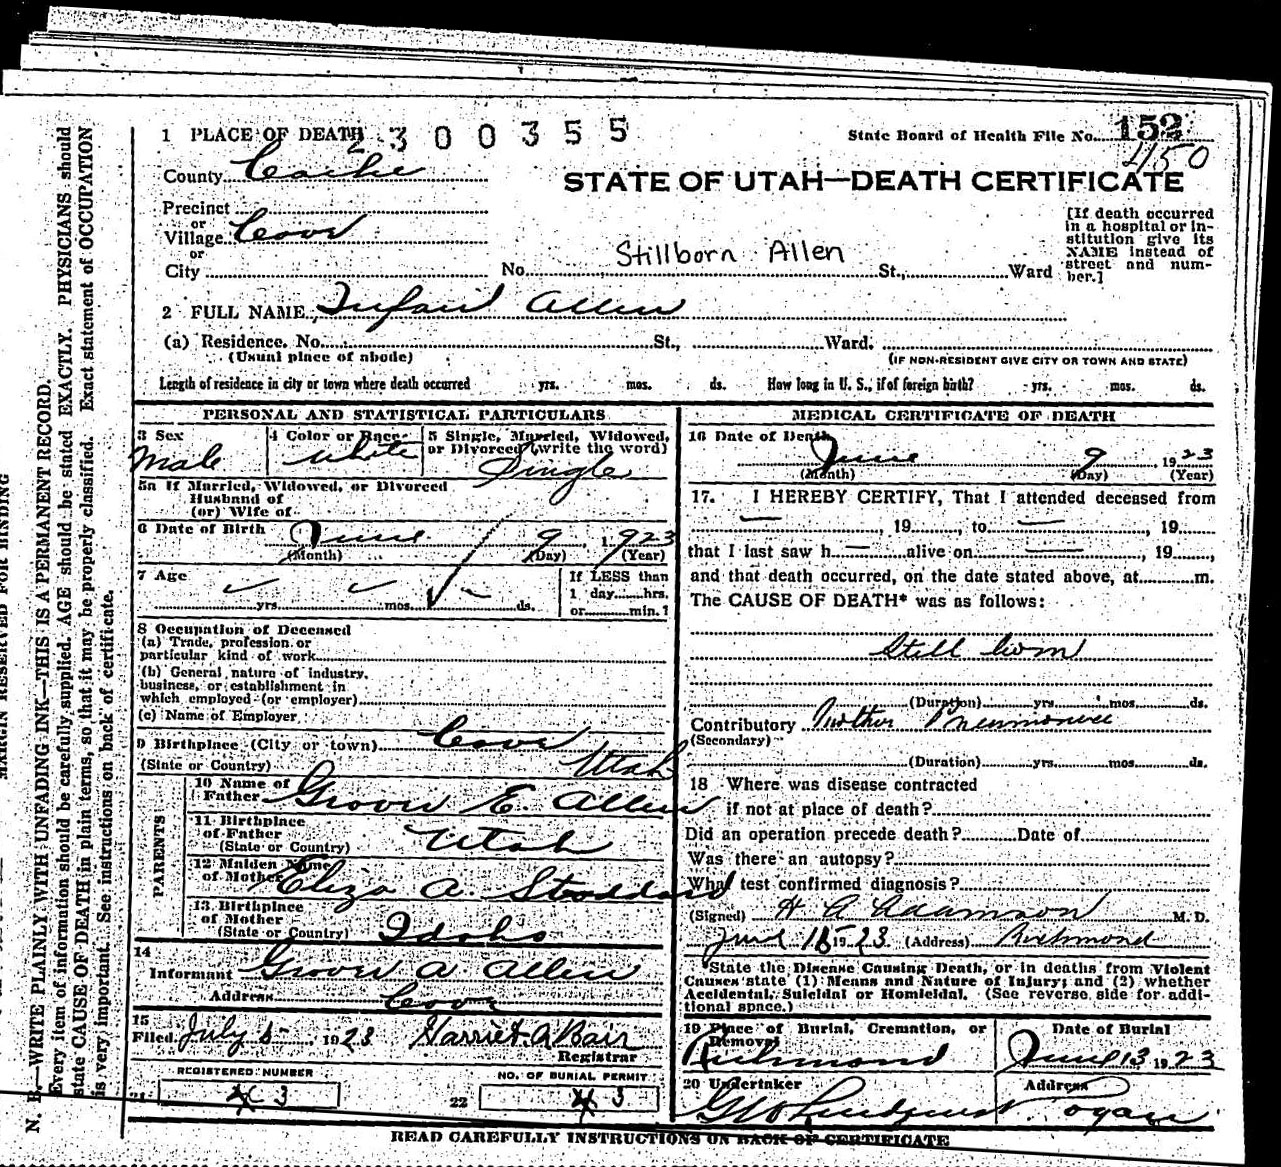 1 PLACE OF DEATH 2300355
State Board of Health File No. 152
450
County Cache
STATE OF UTAH—DEATH CERTIFICATE
Precinct
or
Village Cove
or
City No. Stillborn Allen St., Ward
[If death occurred
in a hospital or in-
stitution give its
NAME instead of
street and num-
ber.]
2 FULL NAME Infant Allen
(a) Residence. No. St., Ward.
(Usual place of abode) (IF NON-RESIDENT GIVE CITY OR TOWN AND STATE)
Length of residence in city or town where death occurred yrs. mos. ds. How long in U. S., if of foreign birth? yrs. mos. ds.
PERSONAL AND STATISTICAL PARTICULARS
3 Sex Male
4 Color or Race White
5 Single, Married, Widowed,
or Divorced (write the word)
Single
5a If Married, Widowed, or Divorced
Husband of
(or) Wife of
6 Date of Birth June 9 1923
(Month) (Day) (Year)
7 Age
yrs. mos. ds.
If LESS than
1 day hrs.
or min.?
8 Occupation of Deceased
(a) Trade, profession or
particular kind of work
(b) General nature of industry,
business, or establishment in
which employed (or employer)
(c) Name of Employer
9 Birthplace (City or town) Cove
(State or Country) Utah
PARENTS
10 Name of
Father Grover E. Allen
11 Birthplace
of Father
(State or Country) Utah
12 Maiden Name
of Mother Eliza A. Stoddard
13 Birthplace
of Mother
(State or Country) Idaho
14
Informant Grover A. Allen
Address Cove
15
Filed July 5 1923 Harriet A Bair
Registrar
REGISTERED NUMBER
21 3
NO. OF BURIAL PERMIT
22 3
MEDICAL CERTIFICATE OF DEATH
16 Date of Death
June 9 1923
(Month) (Day) (Year)
17. I HEREBY CERTIFY, That I attended deceased from
— , 19 , to — , 19
that I last saw h — alive on — , 19 ,
and that death occurred, on the date stated above, at m.
The CAUSE OF DEATH* was as follows:
Still born
(Duration) yrs. mos. ds.
Contributory Mother Pneumonia
(Secondary)
(Duration) yrs. mos. ds.
18 Where was disease contracted
if not at place of death?
Did an operation precede death? Date of
Was there an autopsy?
What test confirmed diagnosis?
(Signed) H A Adamson M. D.
June 1923 (Address) Richmond
*State the Disease Causing Death, or in deaths from Violent
Causes state (1) Means and Nature of Injury; and (2) whether
Accidental, Suicidal or Homicidal. (See reverse side for addi-
tional space.)
19 Place of Burial, Cremation, or
Removal
Richmond
Date of Burial
June 13 1923
20 Undertaker
Address
Logan
READ CAREFULLY INSTRUCTIONS ON BACK OF CERTIFICATE
MARGIN RESERVED FOR BINDING
N. B.—WRITE PLAINLY WITH UNFADING INK—THIS IS A PERMANENT RECORD.
Every item of information should be carefully supplied. AGE should be stated EXACTLY. PHYSICIANS should
state CAUSE OF DEATH in plain terms, so that it may be properly classified. Exact statement of OCCUPATION
is very important. See instructions on back of certificate.